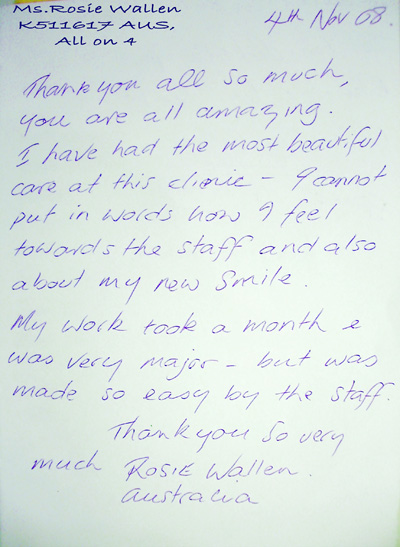 Ms.Rosie Wallen
K511617 AUS,
All on 4
4th Nov 08.
Thankyou all so much,
you are all amazing.
I have had the most beautiful
care at this clinic - I cannot
put in words how I feel
towards the staff and also
about my new smile.
My work took a month &
was very major - but was
made so easy by the staff.
Thankyou so very
much Rosie Wallen.
Australia